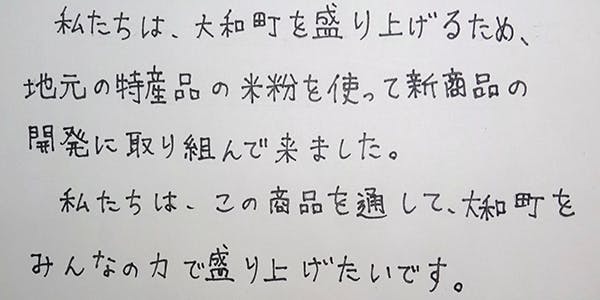 私たちは、大和町を盛り上げるため、
地元の特産品の米粉を使って新商品の
開発に取り組んで来ました。
私たちは、この商品を通して、大和町を
みんなの力で盛り上げたいです。